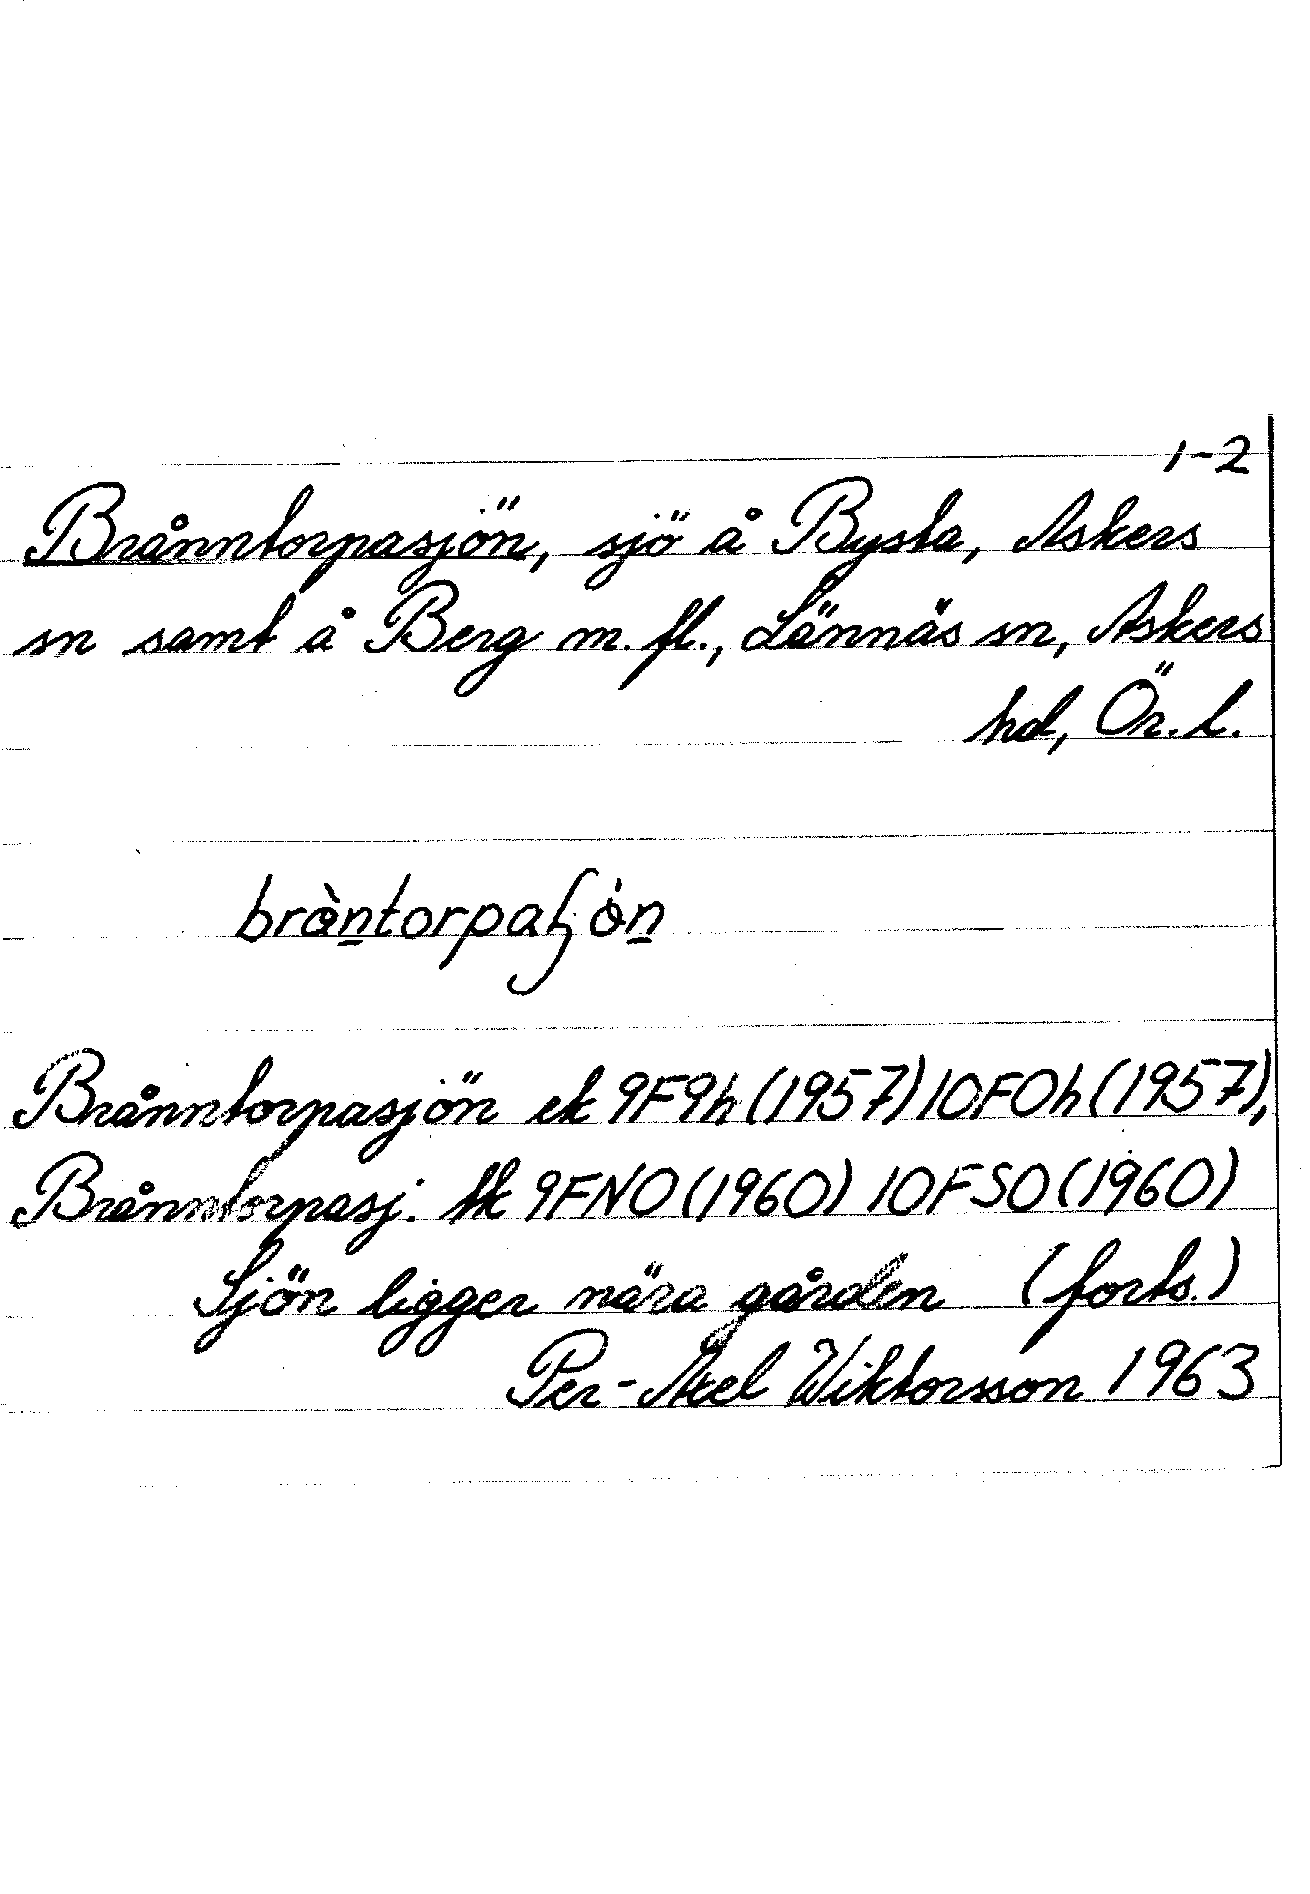 1-2
Brånntorpasjön, sjö å Bysta, Askers
sn samt å Berg m. fl., Lännäs sn, Askers
hd, Ör. L.
Brånntorpasjön ek 9F9h (1957) 10F0h (1957),
Brånntorpasj. tk 9FNO (1960) 10FSO (1960)
Sjön ligger nära gården (forts.)
Per-Axel Wiktorsson 1963